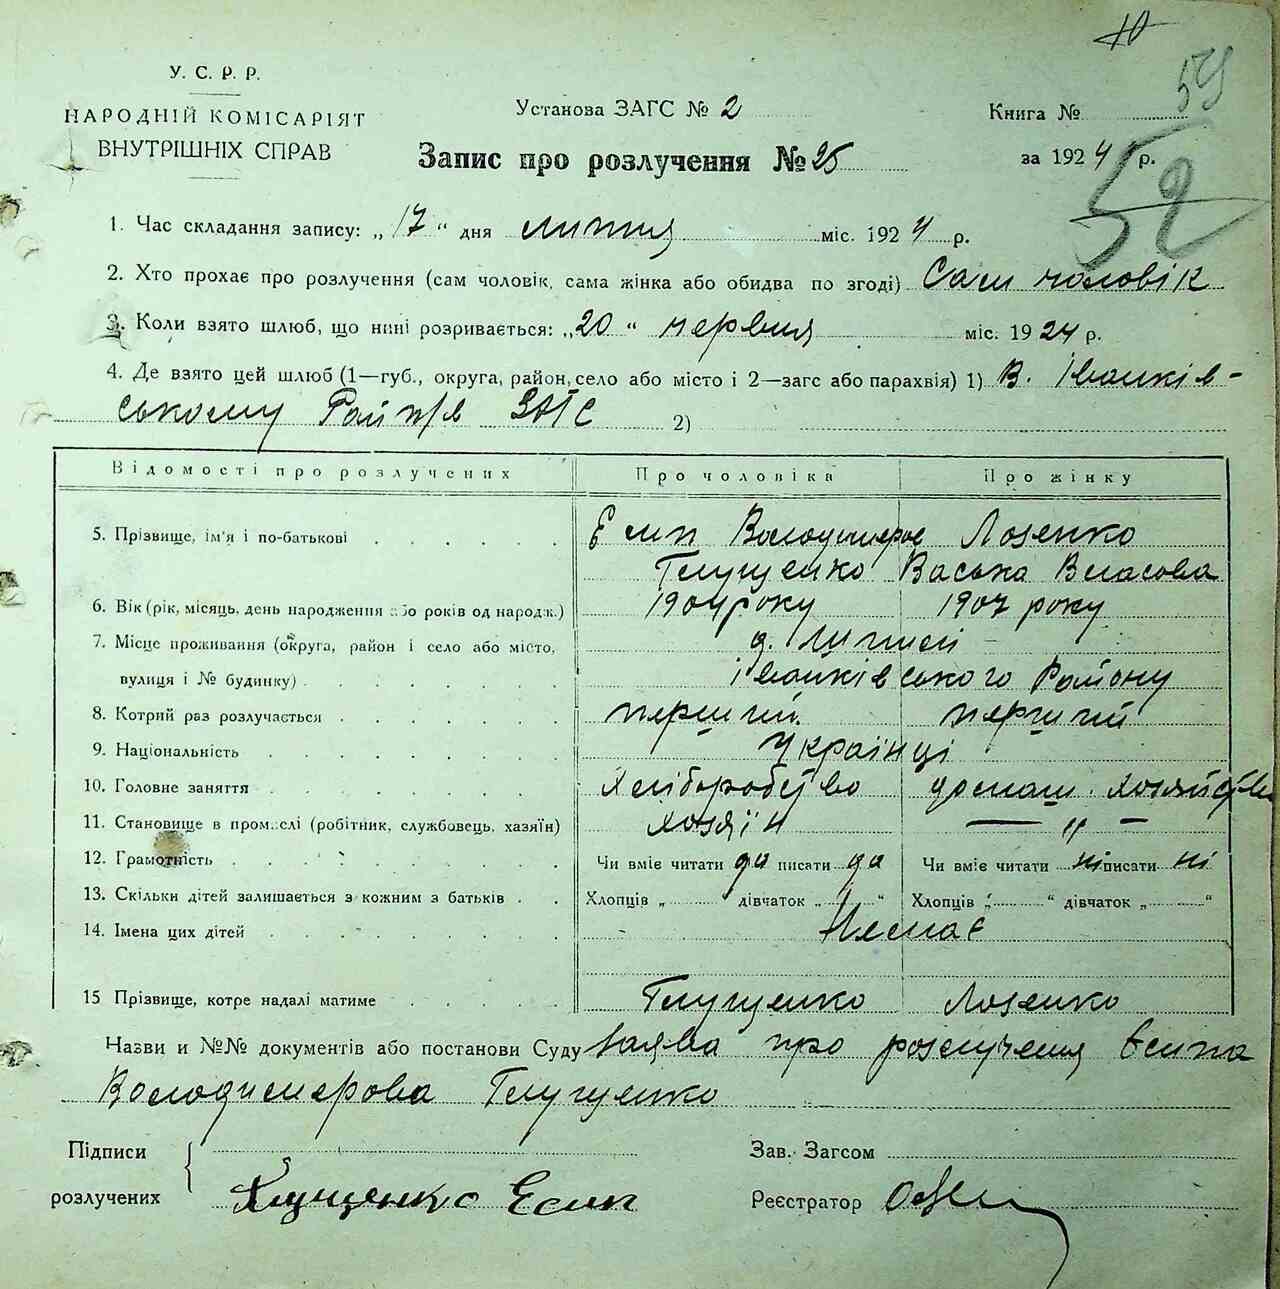 У. С. Р. Р.
НАРОДНІЙ КОМІСАРІЯТ
ВНУТРІШНІХ СПРАВ
Установа ЗАГС № 2
Запис про розлучення № 25
Книга №
59
за 1924 р.
52
1. Час складання запису: „17“ дня липня міс. 1924 р.
2. Хто прохає про розлучення (сам чоловік, сама жінка або обидва по згоді) Сам чоловік
3. Коли взято шлюб, що нині розривається: „20“ червня міс. 1924 р.
4. Де взято цей шлюб (1—губ., округа, район, село або місто і 2—загс або парахвія) 1) В. Іванків-
ському Рай ЗАГС 2)
Відомості про розлучених Про чоловіка Про жінку
5. Прізвище, ім'я і по-батькові Есип Володимеров Лозенко
Глущенко Васька Власова
6. Вік (рік, місяць, день народження або років од народж.) 1904 року 1907 року
7. Місце проживання (округа, район і село або місто, д.
вулиця і № будинку) іванківського Району
8. Котрий раз розлучається перший. перший
9. Національність Українці
10. Головне заняття Хліборобство домаш. хозяйство
11. Становище в промислі (робітник, службовець, хазяїн) хозяїн — „ —
12. Грамотність Чи вміє читати да писати да Чи вміє читати ні писати ні
13. Скільки дітей залишається з кожним з батьків Хлопців „ “ дівчаток „ “ Хлопців „ “ дівчаток „ “
14. Імена цих дітей Немає
15 Прізвище, котре надалі матиме Глущенко Лозенко
Назви и №№ документів або постанови Суду Заява про розлучення Есипа
Володимерова Глущенко
Підписи
розлучених Глущенко Есип
Зав. Загсом
Реєстратор